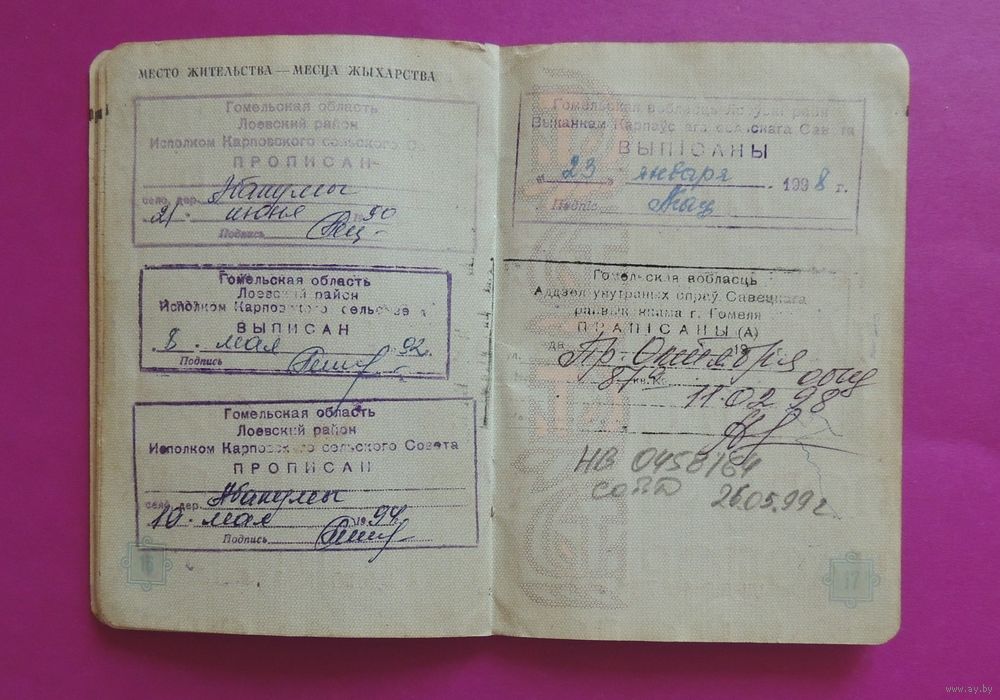 МЕСТО ЖИТЕЛЬСТВА — МЕСЦА ЖЫХАРСТВА
Гомельская область
Лоевский район
Исполком Карповского сельского Со
ПРОПИСАН
село, дер. Абакумы
21. июня 1990
Подпись
Гомельская область
Лоевский район
Исполком Карповского сельсове
ВЫПИСАН
8. мая 92.
Подпись
Гомельская область
Лоевский район
Исполком Карповского сельского Совета
ПРОПИСАН
село, дер. Абакумы
10. мая 1994
Подпись
16
Гомельская вобласць Лоеўскі раён
Выканком Карпаўскага сельскага Савета
ВЫПІСАНЫ
"23 января 1998 г.
Подпіс
Гомельская вобласць
Аддзел унутраных спраў Савецкага
райвыканкама г. Гомеля
ПРАПІСАНЫ (А)
да 19
Пр-Октября
87а
11.02 98
НВ 0458164
26.05.99 г
17
www.ay.by